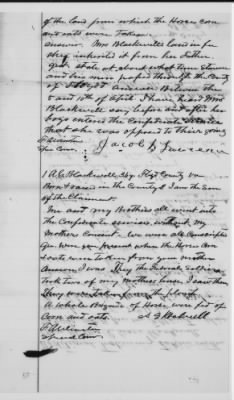 of the land from which the Horses corn
and oats were Taken
answer. Mrs Blackwell Land in fee
they inherited it from her Father
state of about what time
and his men passed through the County
of Floyd Answer Between the
5 and 10th of April I have heard Mrs
Blackwell say before and after her
boys entered the Confederate Service
that she was opposed to their going
Spe Com Jacob
I A. G. Blackwell, Floyd County Va
Born & raised in the County & I am the Son
of the Claimant.
Me and my Brothers all went into
the Confederate service, without my
Mothers Consent. We were all Conscripts
Ques were you present when the Horses Corn
& oats were taken from your mother
Answer I was They the Federal Soldiers
took two of my Mothers horses I saw them
They were taken from the plough
A whole Brigade of Horses were fed of
Corn and oats A G Blackwell
Special Com